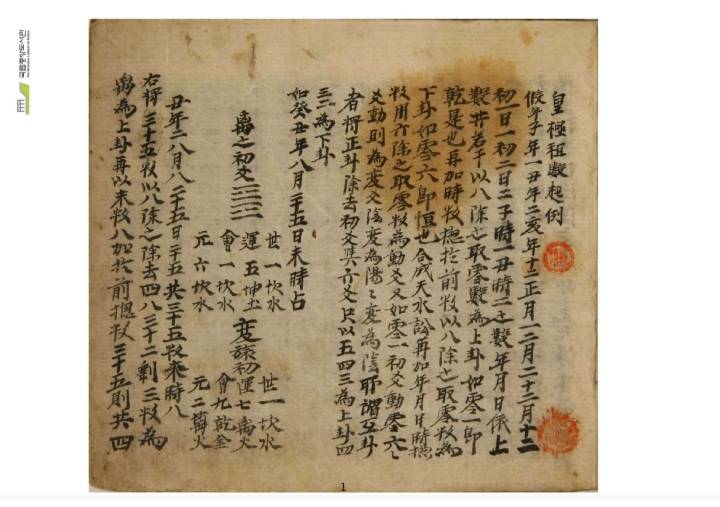 皇極祖數起例
假令子年一丑年二亥年十二正月一二月二十二月十二
初一日一初二日二子時一丑時二之數年月日依上
數共若干以八除之取零數爲上卦如零一卽
乾是也再加時數總於前數以八除之取零數為
下卦如零六卽 也合成天水訟再加年月日時總
數用六除之取零數為動爻又如零一初爻動零六之
爻動則為變爻陰變為陽之變為陰耶謂互卦
者将正卦除去初爻 六爻只以五四三為上卦四
三二為下卦
如癸丑年八月二十五日未時占
之初爻
世一坎水
運五坤土
會一坎水
元六坎水
變旅初
世一坎水
運七 火
會九乾金
元二 火
丑年二八月八二十五日二十五共三十五數未時八
右将三十五數以八除之除去四八三十二剩三數為
為上卦再以未數八加於前總數三十五則共四
국립중앙도서관
1